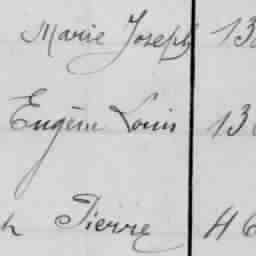 Marie Joseph 13
Eugène Louis 13
h Pierre 46